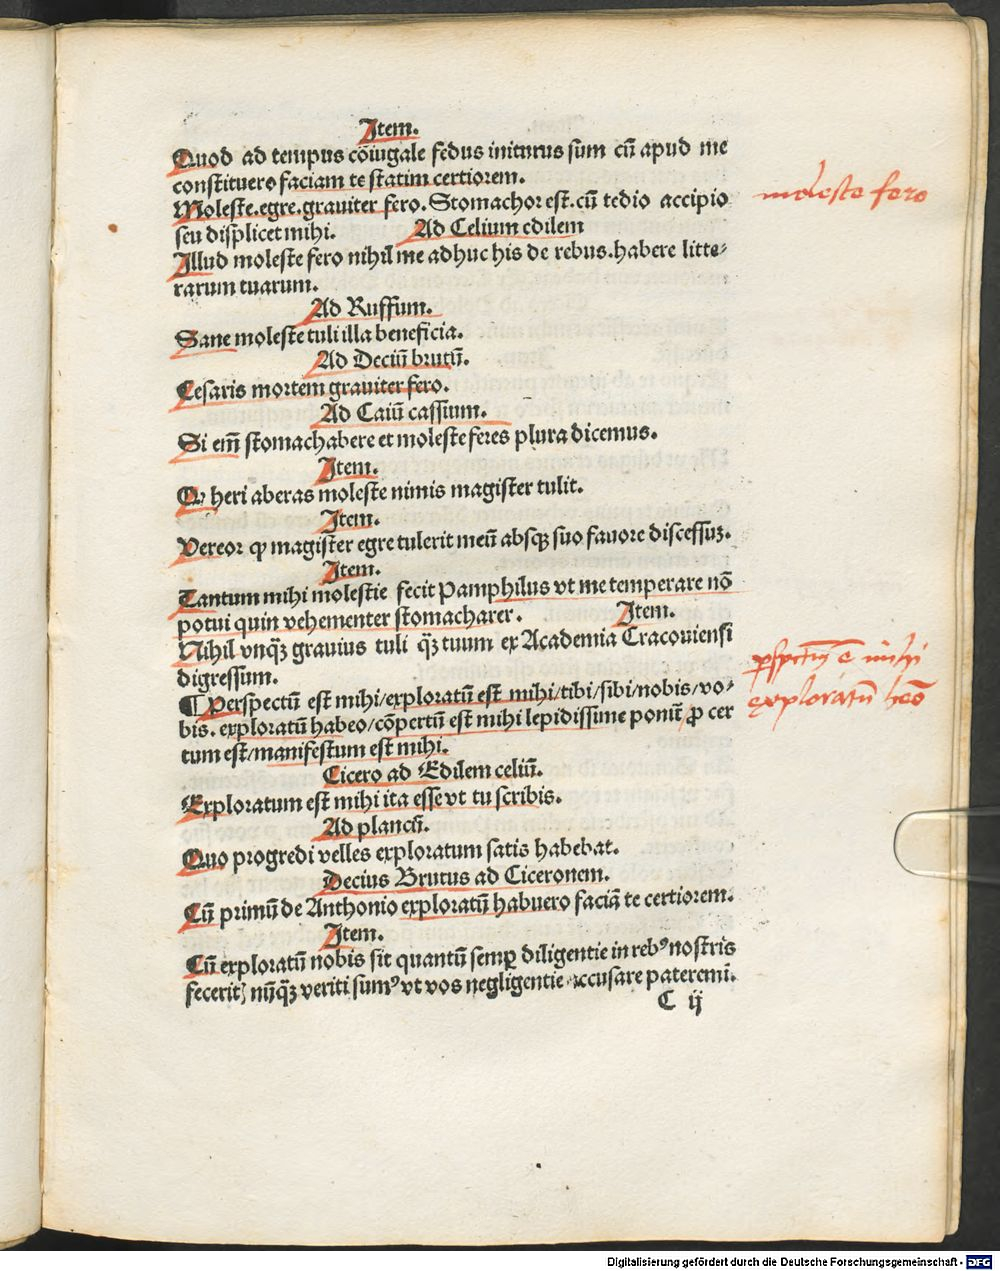 Item.
Quod ad tempus cōiugale fedus initurus sum cū apud me
constituero faciam te statim certiorem.
Moleste.egre.grauiter fero. Stomachor est.cū tedio accipio
moleste fero
seu displicet mihi. Ad Celium edilem
Illud moleste fero nihil me adhuc his de rebus.habere litte⸗
rarum tuarum.
Ad Ruffum.
Sane moleste tuli illa beneficia.
Ad Deciū brutū.
Cesaris mortem grauiter fero.
Ad Caiū cassium.
Si em̄ stomachabere et moleste feres plura dicemus.
Item.
Qꝫ heri aberas moleste nimis magister tulit.
Item.
Vereor qꝫ magister egre tulerit meū absqꝫ suo fauore discessuꝫ.
Item.
Tantum mihi molestie fecit Pamphilus vt me temperare nō
potui quin vehementer stomacharer. Item.
Nihil vnqꝫ grauius tuli qꝫ tuum ex Academia Cracouiensi
digressum.
¶ Perspectū est mihi/exploratū est mihi/tibi/sibi/nobis/vo⸗
bis. exploratū habeo/cōpertū est mihi lepidissime ponū/ꝓ cer
exploratū heō
tum est/manifestum est mihi.
Cicero ad Edilem celiū.
Exploratum est mihi ita esse vt tu scribis.
Ad plancū.
Quo progredi velles exploratum satis habebat.
Decius Brutus ad Ciceronem.
Cū primū de Anthonio exploratū habuero faciā te certiorem.
Item.
Cū exploratū nobis sit quantū semꝑ diligentie in rebꝰ nostris
feceritꝫ nūqꝫ veriti sumꝰ vt vos negligentie accusare pateremī.
C ij
Digitalisierung gefördert durch die Deutsche Forschungsgemeinschaft - DFG